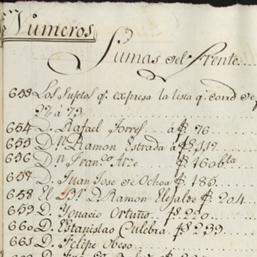 Numeros
Sumas del Frente
653 Los Sugetos q.e expresa la lista q.e corre de f
22 a 73
654 D. Rafael Torres à f.s 76
655 D.n Ramon Estrada à f.s 117
656 D.n Fran.co Arze f.s 160 bta
657 D. Juan Jose de Ochoa f.s 185
658 El D. Ramon Elejalde f. 204
659 D. Ygnacio Ortuño f.s 220
660 D. Estanislao Culebra f.s 239
661 D. Felipe Obeso